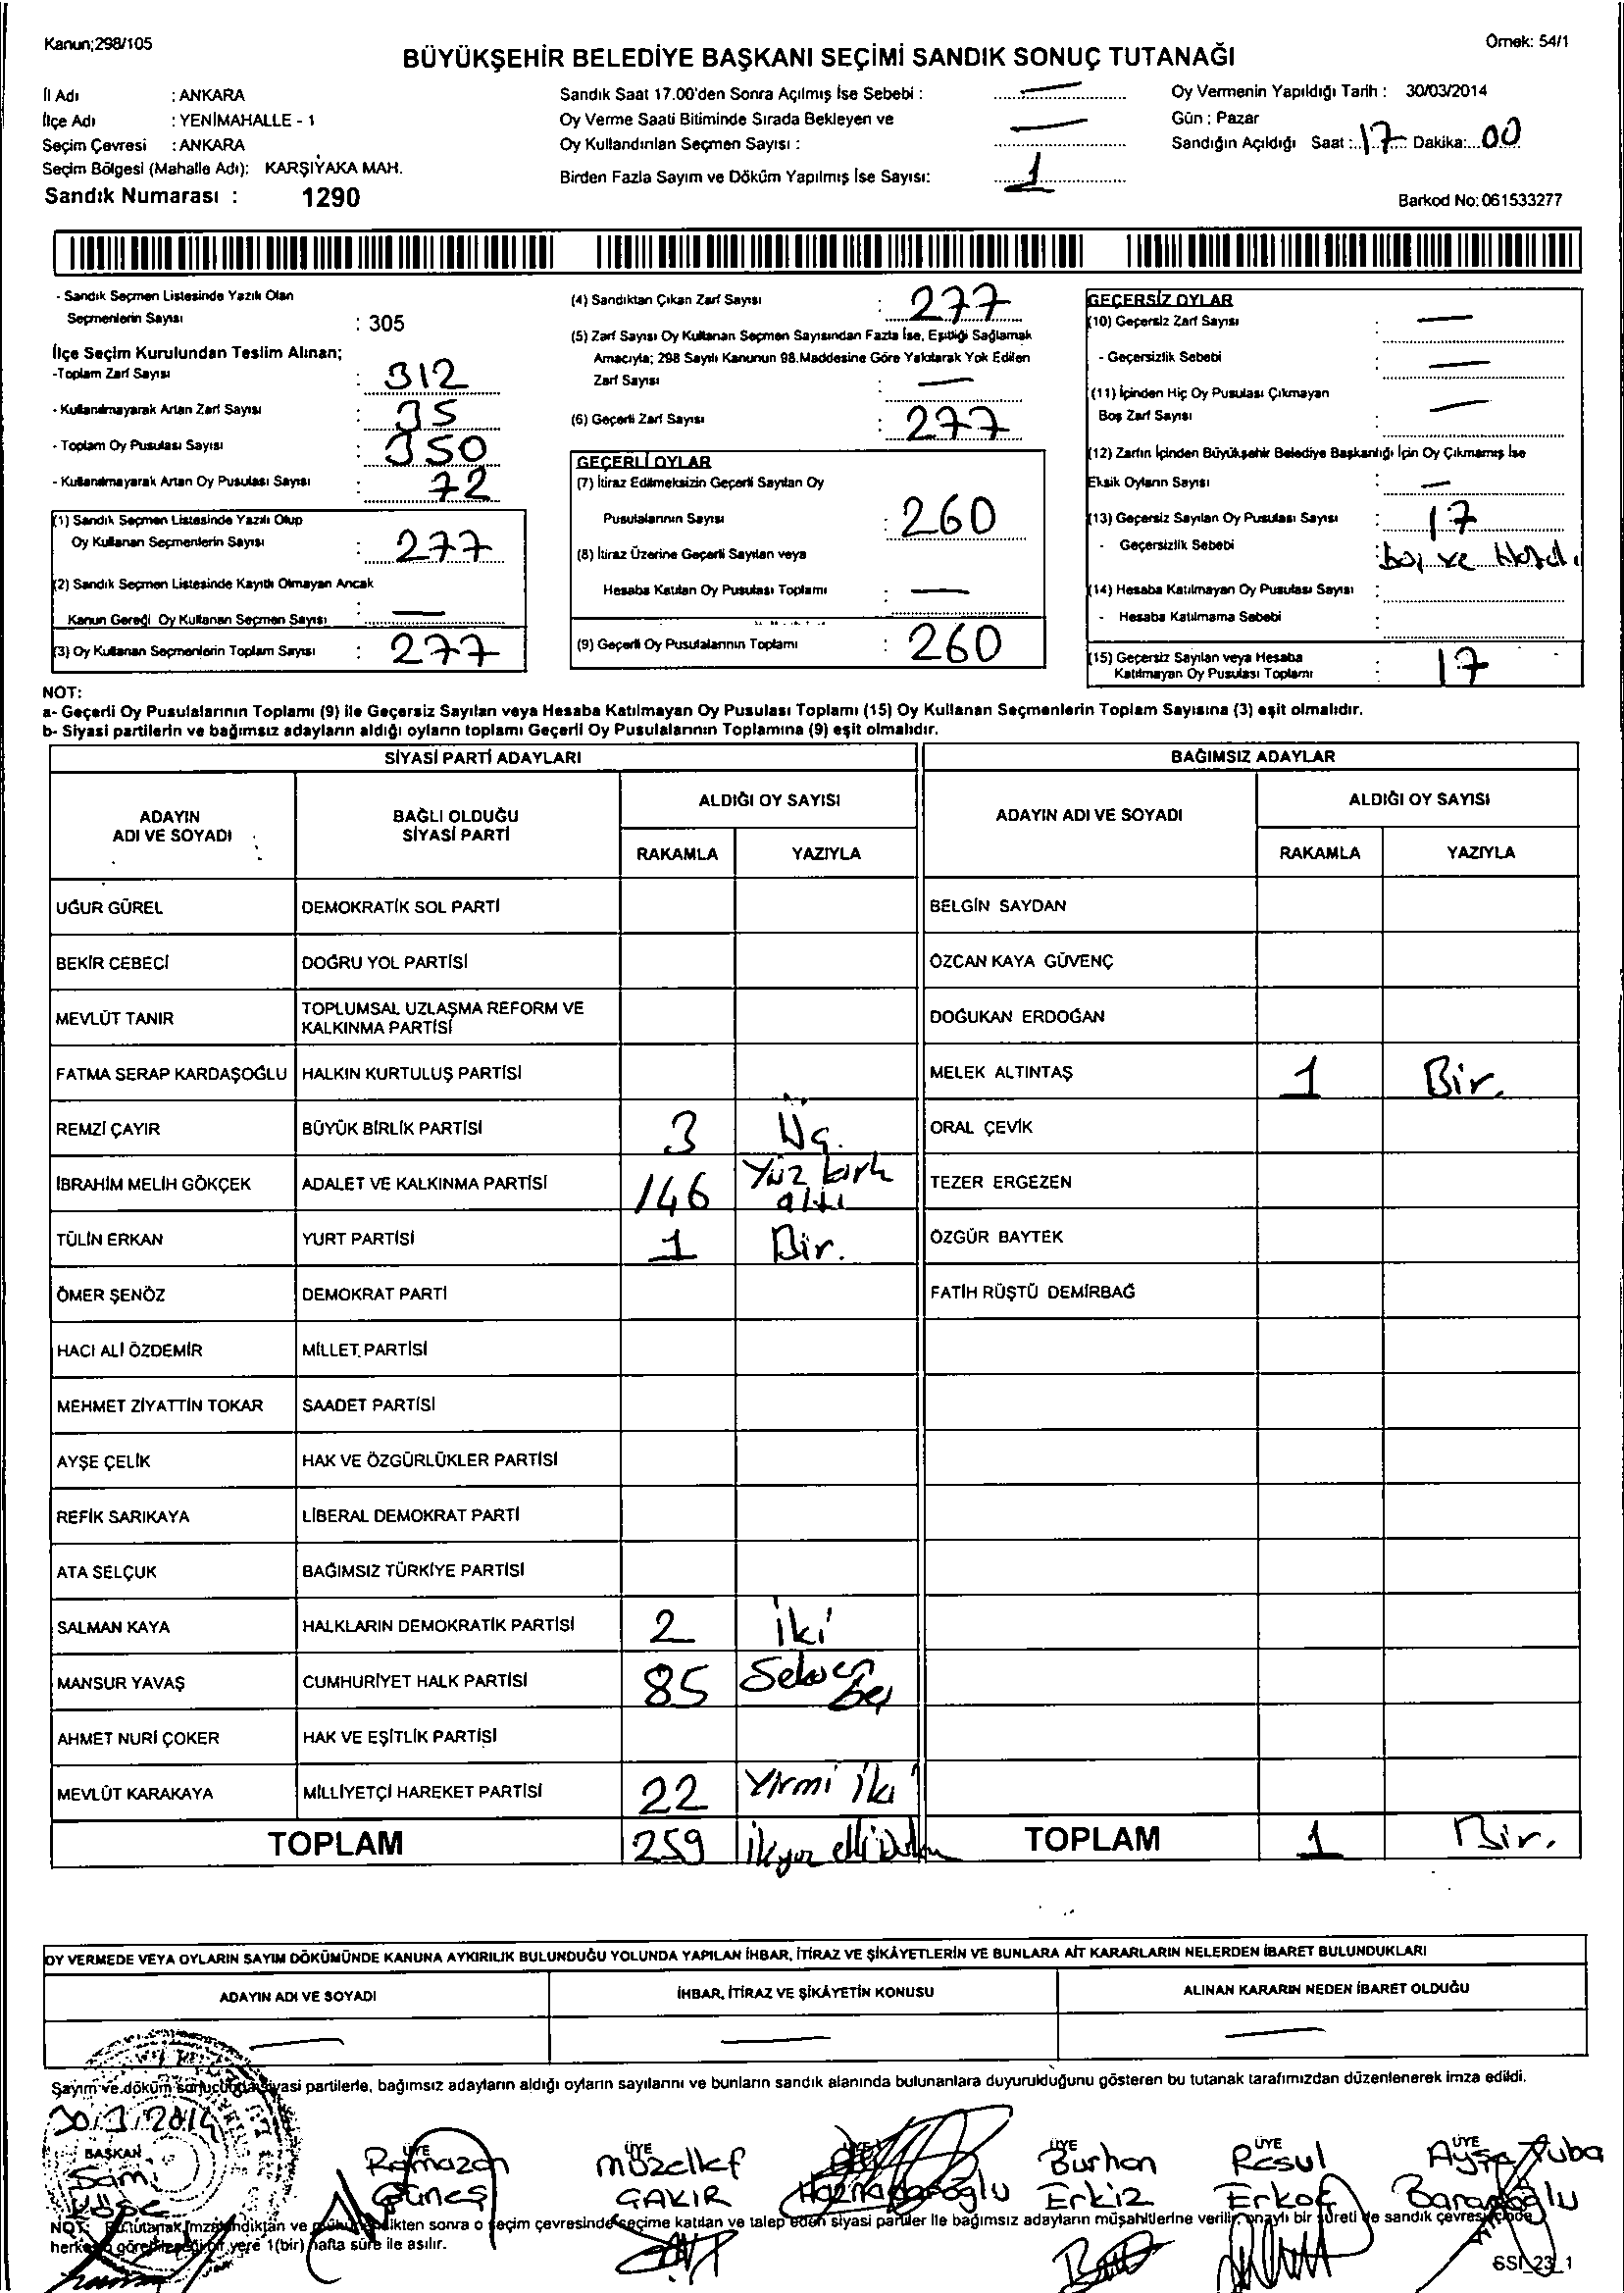 Kanun;298/105
Örnek: 54/1
BÜYÜKŞEHİR BELEDİYE BAŞKANI SEÇİMİ SANDIK SONUÇ TUTANAĞI
İl Adı : ANKARA
İlçe Adı : YENİMAHALLE - 1
Seçim Çevresi : ANKARA
Seçim Bölgesi (Mahalle Adı): KARŞIYAKA MAH.
Sandık Numarası : 1290
Sandık Saat 17.00'den Sonra Açılmış İse Sebebi : —
Oy Verme Saati Bitiminde Sırada Bekleyen ve
Oy Kullandırılan Seçmen Sayısı : —
Birden Fazla Sayım ve Döküm Yapılmış İse Sayısı: 1
Oy Vermenin Yapıldığı Tarih : 30/03/2014
Gün : Pazar
Sandığın Açıldığı Saat :..17... Dakika:...00
Barkod No: 061533277
- Sandık Seçmen Listesinde Yazılı Olan
Seçmenlerin Sayısı : 305
İlçe Seçim Kurulundan Teslim Alınan;
-Toplam Zarf Sayısı : 312
- Kullanılmayarak Artan Zarf Sayısı : 35
- Toplam Oy Pusulası Sayısı : 350
- Kullanılmayarak Artan Oy Pusulası Sayısı : 72
(1) Sandık Seçmen Listesinde Yazılı Olup
Oy Kullanan Seçmenlerin Sayısı : 277
(2) Sandık Seçmen Listesinde Kayıtlı Olmayan Ancak
Kanun Gereği Oy Kullanan Seçmen Sayısı : —
(3) Oy Kullanan Seçmenlerin Toplam Sayısı : 277
(4) Sandıktan Çıkan Zarf Sayısı : 277
(5) Zarf Sayısı Oy Kullanan Seçmen Sayısından Fazla İse, Eşitliği Sağlamak
Amacıyla; 298 Sayılı Kanunun 98.Maddesine Göre Yakılarak Yok Edilen
Zarf Sayısı : —
(6) Geçerli Zarf Sayısı : 277
GEÇERLİ OYLAR
(7) İtiraz Edilmeksizin Geçerli Sayılan Oy
Pusulalarının Sayısı : 260
(8) İtiraz Üzerine Geçerli Sayılan veya
Hesaba Katılan Oy Pusulası Toplamı : —
(9) Geçerli Oy Pusulalarının Toplamı : 260
GEÇERSİZ OYLAR
(10) Geçersiz Zarf Sayısı : —
- Geçersizlik Sebebi : —
(11) İçinden Hiç Oy Pusulası Çıkmayan
Boş Zarf Sayısı : —
(12) Zarfın İçinden Büyükşehir Belediye Başkanlığı İçin Oy Çıkmamış İse
Eksik Oyların Sayısı : —
(13) Geçersiz Sayılan Oy Pusulası Sayısı : 17
- Geçersizlik Sebebi : boş ve
(14) Hesaba Katılmayan Oy Pusulası Sayısı :
- Hesaba Katılmama Sebebi :
(15) Geçersiz Sayılan veya Hesaba
Katılmayan Oy Pusulası Toplamı : 17
NOT:
a- Geçerli Oy Pusulalarının Toplamı (9) ile Geçersiz Sayılan veya Hesaba Katılmayan Oy Pusulası Toplamı (15) Oy Kullanan Seçmenlerin Toplam Sayısına (3) eşit olmalıdır.
b- Siyasi partilerin ve bağımsız adayların aldığı oyların toplamı Geçerli Oy Pusulalarının Toplamına (9) eşit olmalıdır.
SİYASİ PARTİ ADAYLARI
BAĞIMSIZ ADAYLAR
ADAYIN
ADI VE SOYADI
BAĞLI OLDUĞU
SİYASİ PARTİ
ALDIĞI OY SAYISI
RAKAMLA YAZIYLA
ADAYIN ADI VE SOYADI
ALDIĞI OY SAYISI
RAKAMLA YAZIYLA
UĞUR GÜREL DEMOKRATİK SOL PARTİ BELGİN SAYDAN
BEKİR CEBECİ DOĞRU YOL PARTİSİ ÖZCAN KAYA GÜVENÇ
MEVLÜT TANIR TOPLUMSAL UZLAŞMA REFORM VE
KALKINMA PARTİSİ DOĞUKAN ERDOĞAN
FATMA SERAP KARDAŞOĞLU HALKIN KURTULUŞ PARTİSİ MELEK ALTINTAŞ 1 Bir.
REMZİ ÇAYIR BÜYÜK BİRLİK PARTİSİ 3 Üç. ORAL ÇEVİK
İBRAHİM MELİH GÖKÇEK ADALET VE KALKINMA PARTİSİ 146 Yüz kırk
altı TEZER ERGEZEN
TÜLİN ERKAN YURT PARTİSİ 1 Bir. ÖZGÜR BAYTEK
ÖMER ŞENÖZ DEMOKRAT PARTİ FATİH RÜŞTÜ DEMİRBAĞ
HACI ALİ ÖZDEMİR MİLLET PARTİSİ
MEHMET ZİYATTİN TOKAR SAADET PARTİSİ
AYŞE ÇELİK HAK VE ÖZGÜRLÜKLER PARTİSİ
REFİK SARIKAYA LİBERAL DEMOKRAT PARTİ
ATA SELÇUK BAĞIMSIZ TÜRKİYE PARTİSİ
SALMAN KAYA HALKLARIN DEMOKRATİK PARTİSİ 2 İki
MANSUR YAVAŞ CUMHURİYET HALK PARTİSİ 85 Seksen
beş
AHMET NURİ ÇOKER HAK VE EŞİTLİK PARTİSİ
MEVLÜT KARAKAYA MİLLİYETÇİ HAREKET PARTİSİ 22 Yirmi İki
TOPLAM 259 İkiyüz elli dokuz TOPLAM 1 Bir.
OY VERMEDE VEYA OYLARIN SAYIM DÖKÜMÜNDE KANUNA AYKIRILIK BULUNDUĞU YOLUNDA YAPILAN İHBAR, İTİRAZ VE ŞİKÂYETLERİN VE BUNLARA AİT KARARLARIN NELERDEN İBARET BULUNDUKLARI
ADAYIN ADI VE SOYADI İHBAR, İTİRAZ VE ŞİKÂYETİN KONUSU ALINAN KARARIN NEDEN İBARET OLDUĞU
— — —
Sayım ve döküm sonucunda siyasi partilerle, bağımsız adayların aldığı oyların sayılarını ve bunların sandık alanında bulunanlara duyurulduğunu gösteren bu tutanak tarafımızdan düzenlenerek imza edildi.
30/3/2014
BAŞKAN ÜYE ÜYE ÜYE ÜYE ÜYE ÜYE
Sami Ramazan Müzellef Burhan Resul Ayşe Tuba
Köse Güneş ÇAKIR Erkiz
NOT: Bu tutanak imzalandıktan ve mühürlendikten sonra o seçim çevresinde seçime katılan ve talep eden siyasi partiler ile bağımsız adayların müşahitlerine verilir, onaylı bir sureti de sandık çevresinde
herkesin görebileceği bir yere 1(bir) hafta süre ile asılır.
SSI_23_1